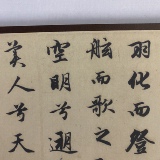 羽化而登
舷而歌之
空明兮溯
美人兮天